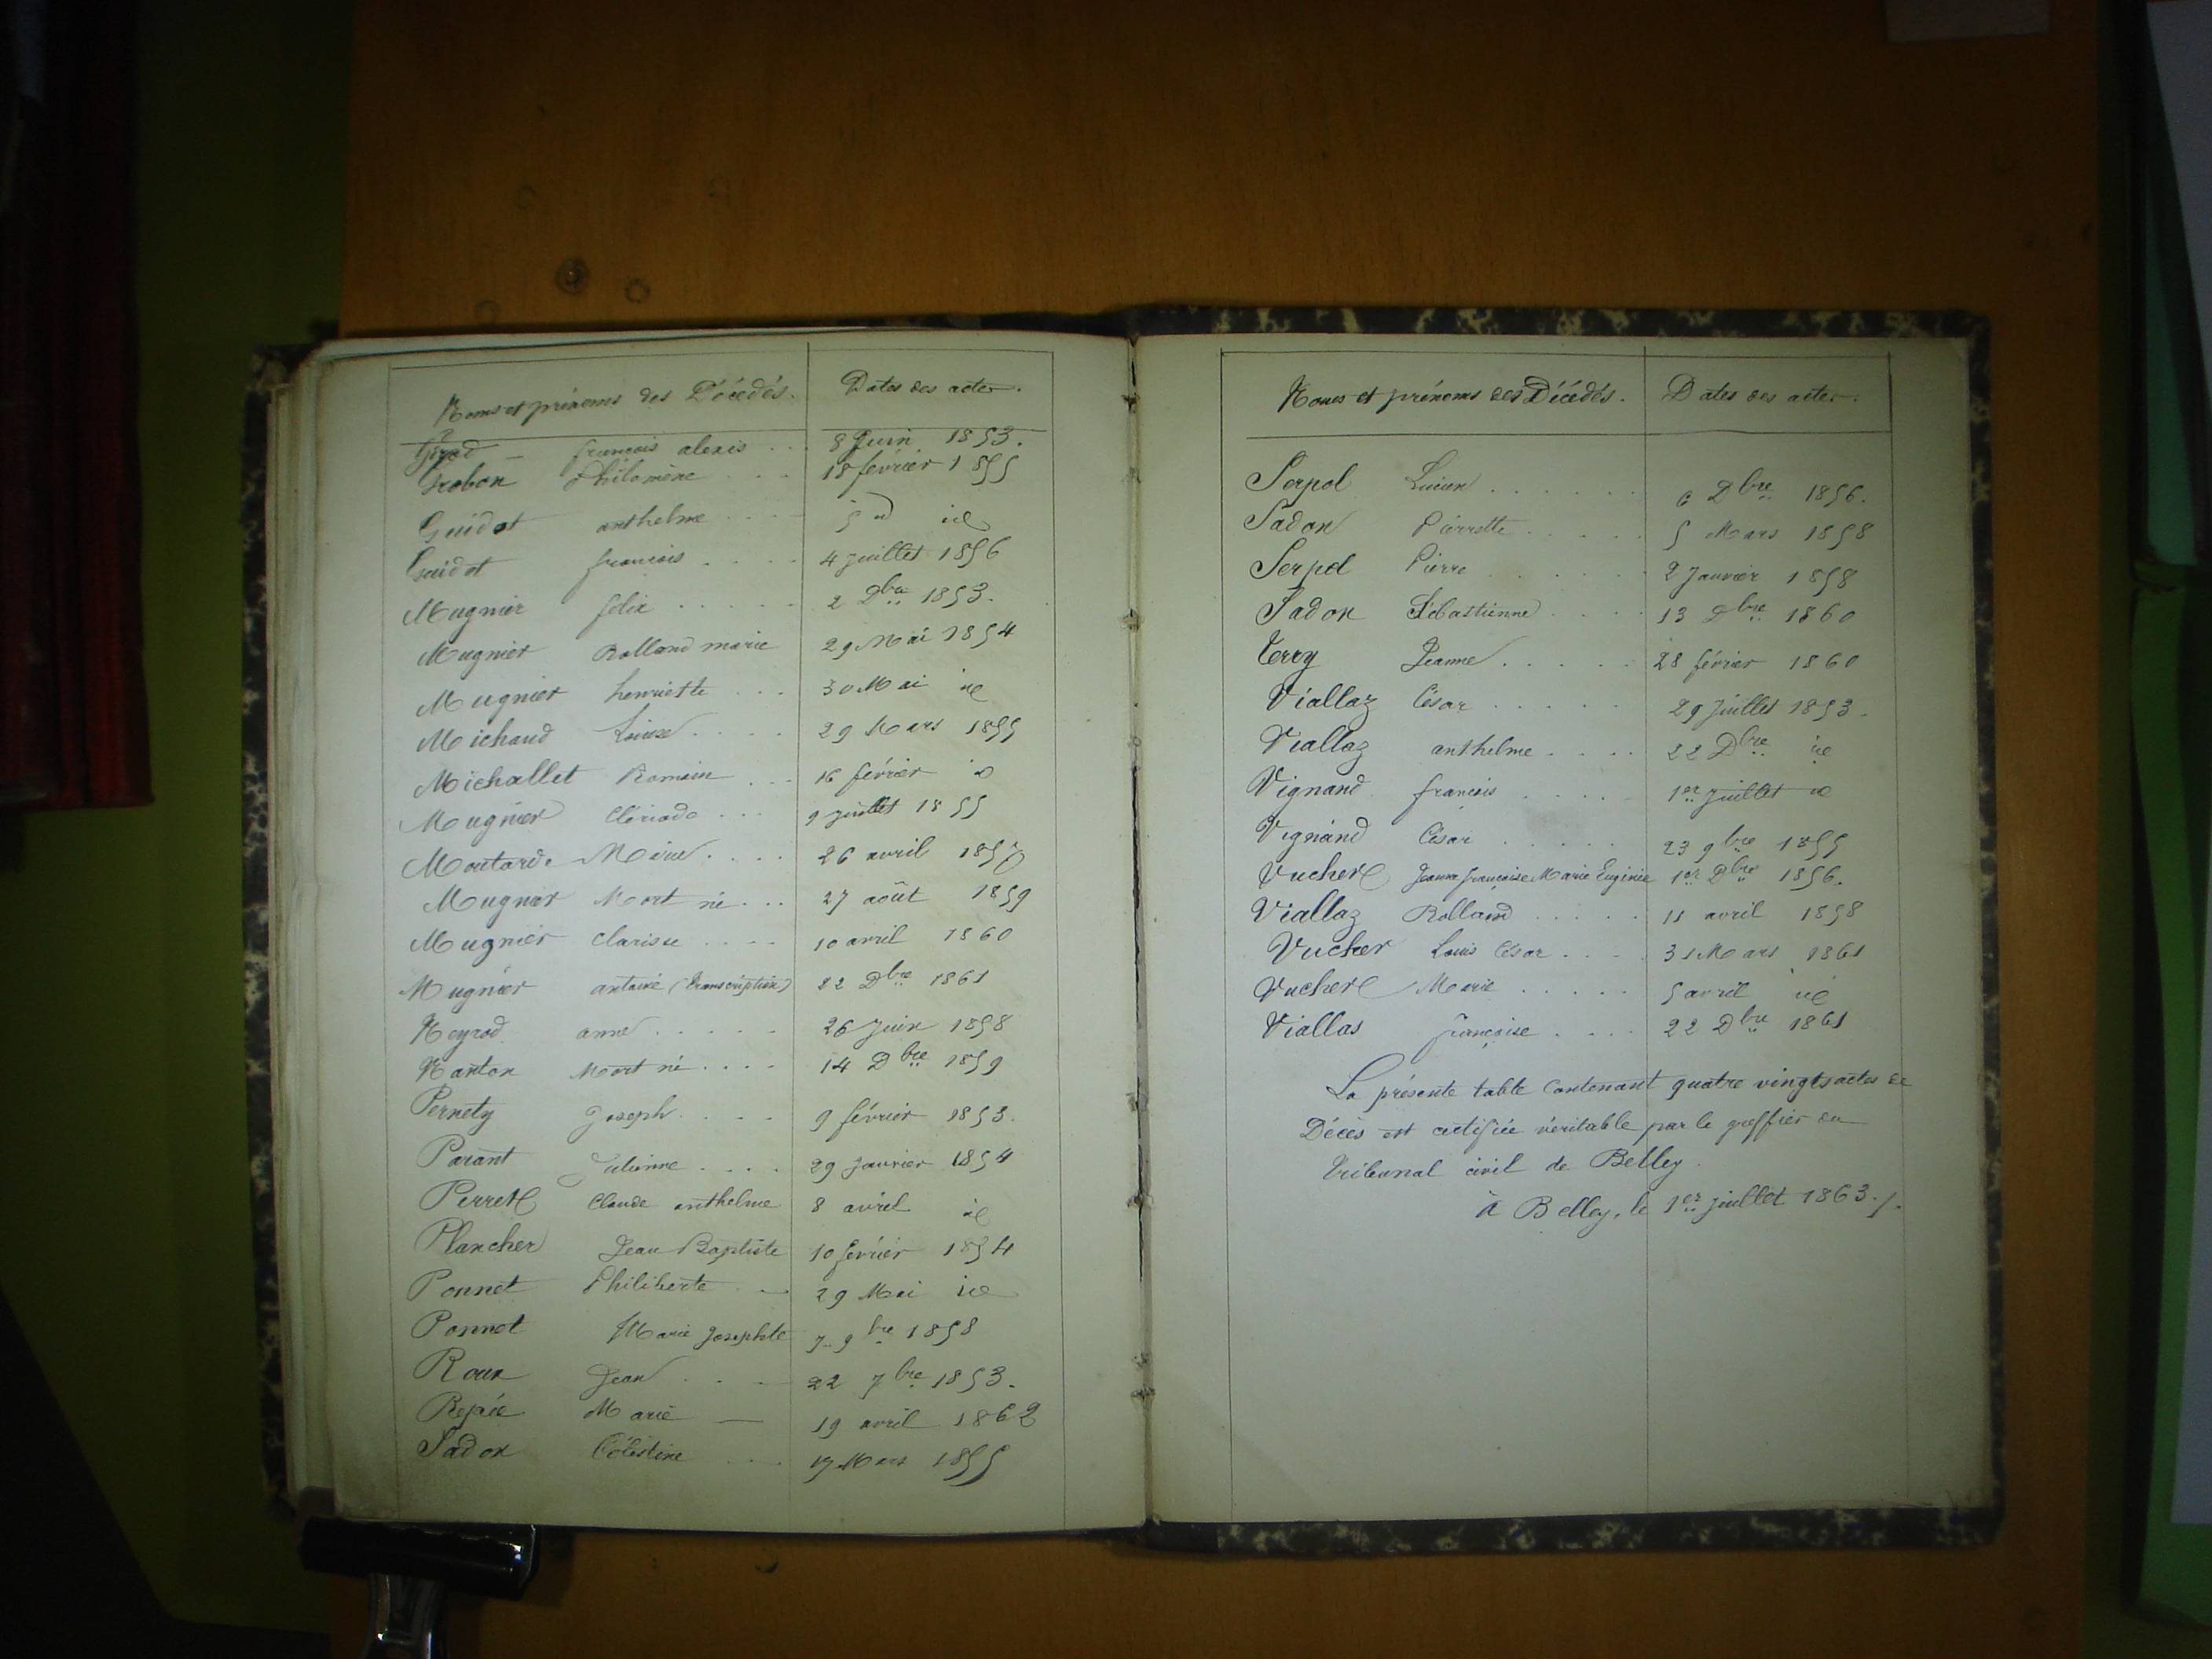 Noms et prénoms des Décédés. Dates des actes.
Girod françois alexis 8 Juin 1853.
Grobon Philomène 18 février 1855
Guidot anthelme 5 d id
Guidot françois 4 juillet 1856
Mugnier félix 2 Dbre 1853.
Mugnier Rolland marie 29 Mai 1854
Mugnier henriette 30 Mai id
Michaud Louise 29 Mars 1855
Michallet Romain 16 février id
Mugnier Cloriade 9 juillet 1855
Moutarde Marie 26 avril 1857
Mugnier Mort né 27 août 1859
Mugnier Clarisse 10 avril 1860
Mugnier antoine (transcription) 22 Dbre 1861
Neyrod anne 26 Juin 1858
Nanton Mort né 14 Dbre 1859
Pernety Joseph 9 février 1853.
Parant Julienne 29 Janvier 1854
Perret Claude anthelme 8 avril id
Plancher Jean Baptiste 10 février 1854
Ponnet Philiberte 29 Mai id
Ponnet Marie Josephte 7 9bre 1858
Roux Jean 22 7bre 1853.
Marie 19 avril 1862
Sadon Célestine 17 Mars 1855
Noms et prénoms des Décédés. Dates des actes.
Serpol Lucien 6 Dbre 1856.
Sadon Pierrette 5 Mars 1858
Serpol Pierre 2 Janvier 1858
Sadon Sébastienne 13 Dbre 1860
Terry Jeanne 28 février 1860
Viallaz César 29 juillet 1853.
Viallaz anthelme 22 Dbre id
Vignand françois 1er juillet id
Vignand César 23 9bre 1855
Vucher Jeanne françoise Marie Eugénie 1er Dbre 1856.
Viallaz Rolland 11 avril 1858
Vucher Louis César 31 Mars 1861
Vucher Marie 5 avril id
Viallas françoise 22 Dbre 1861
La présente table Contenant quatre vingts actes de
Décès est certifiée véritable par le greffier du
tribunal civil de Belley.
à Belley, le 1er juillet 1863.